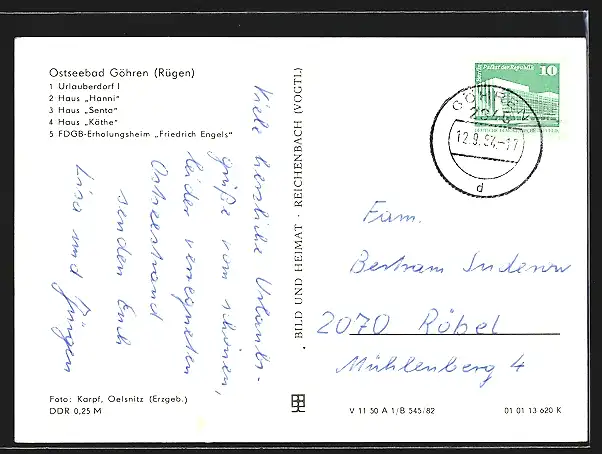 Ostseebad Göhren (Rügen)
1 Urlauberdorf I
2 Haus „Hanni“
3 Haus „Senta“
4 Haus „Käthe“
5 FDGB-Erholungsheim „Friedrich Engels“
Viele herzliche Urlaubs-
grüße vom schönen,
leider verregneten
Ostseestrand
senden Euch
Lisa und Jürgen
Foto: Karpf, Oelsnitz (Erzgeb.)
DDR 0,25 M
BILD UND HEIMAT · REICHENBACH (VOGTL)
Palast der Republik 10
GÖHREN
12.9.87.-17
d
Fam.
Bertram
2070 Röbel
Mühlenberg 4
V 11 50 A 1/B 545/82
01 01 13 620 K